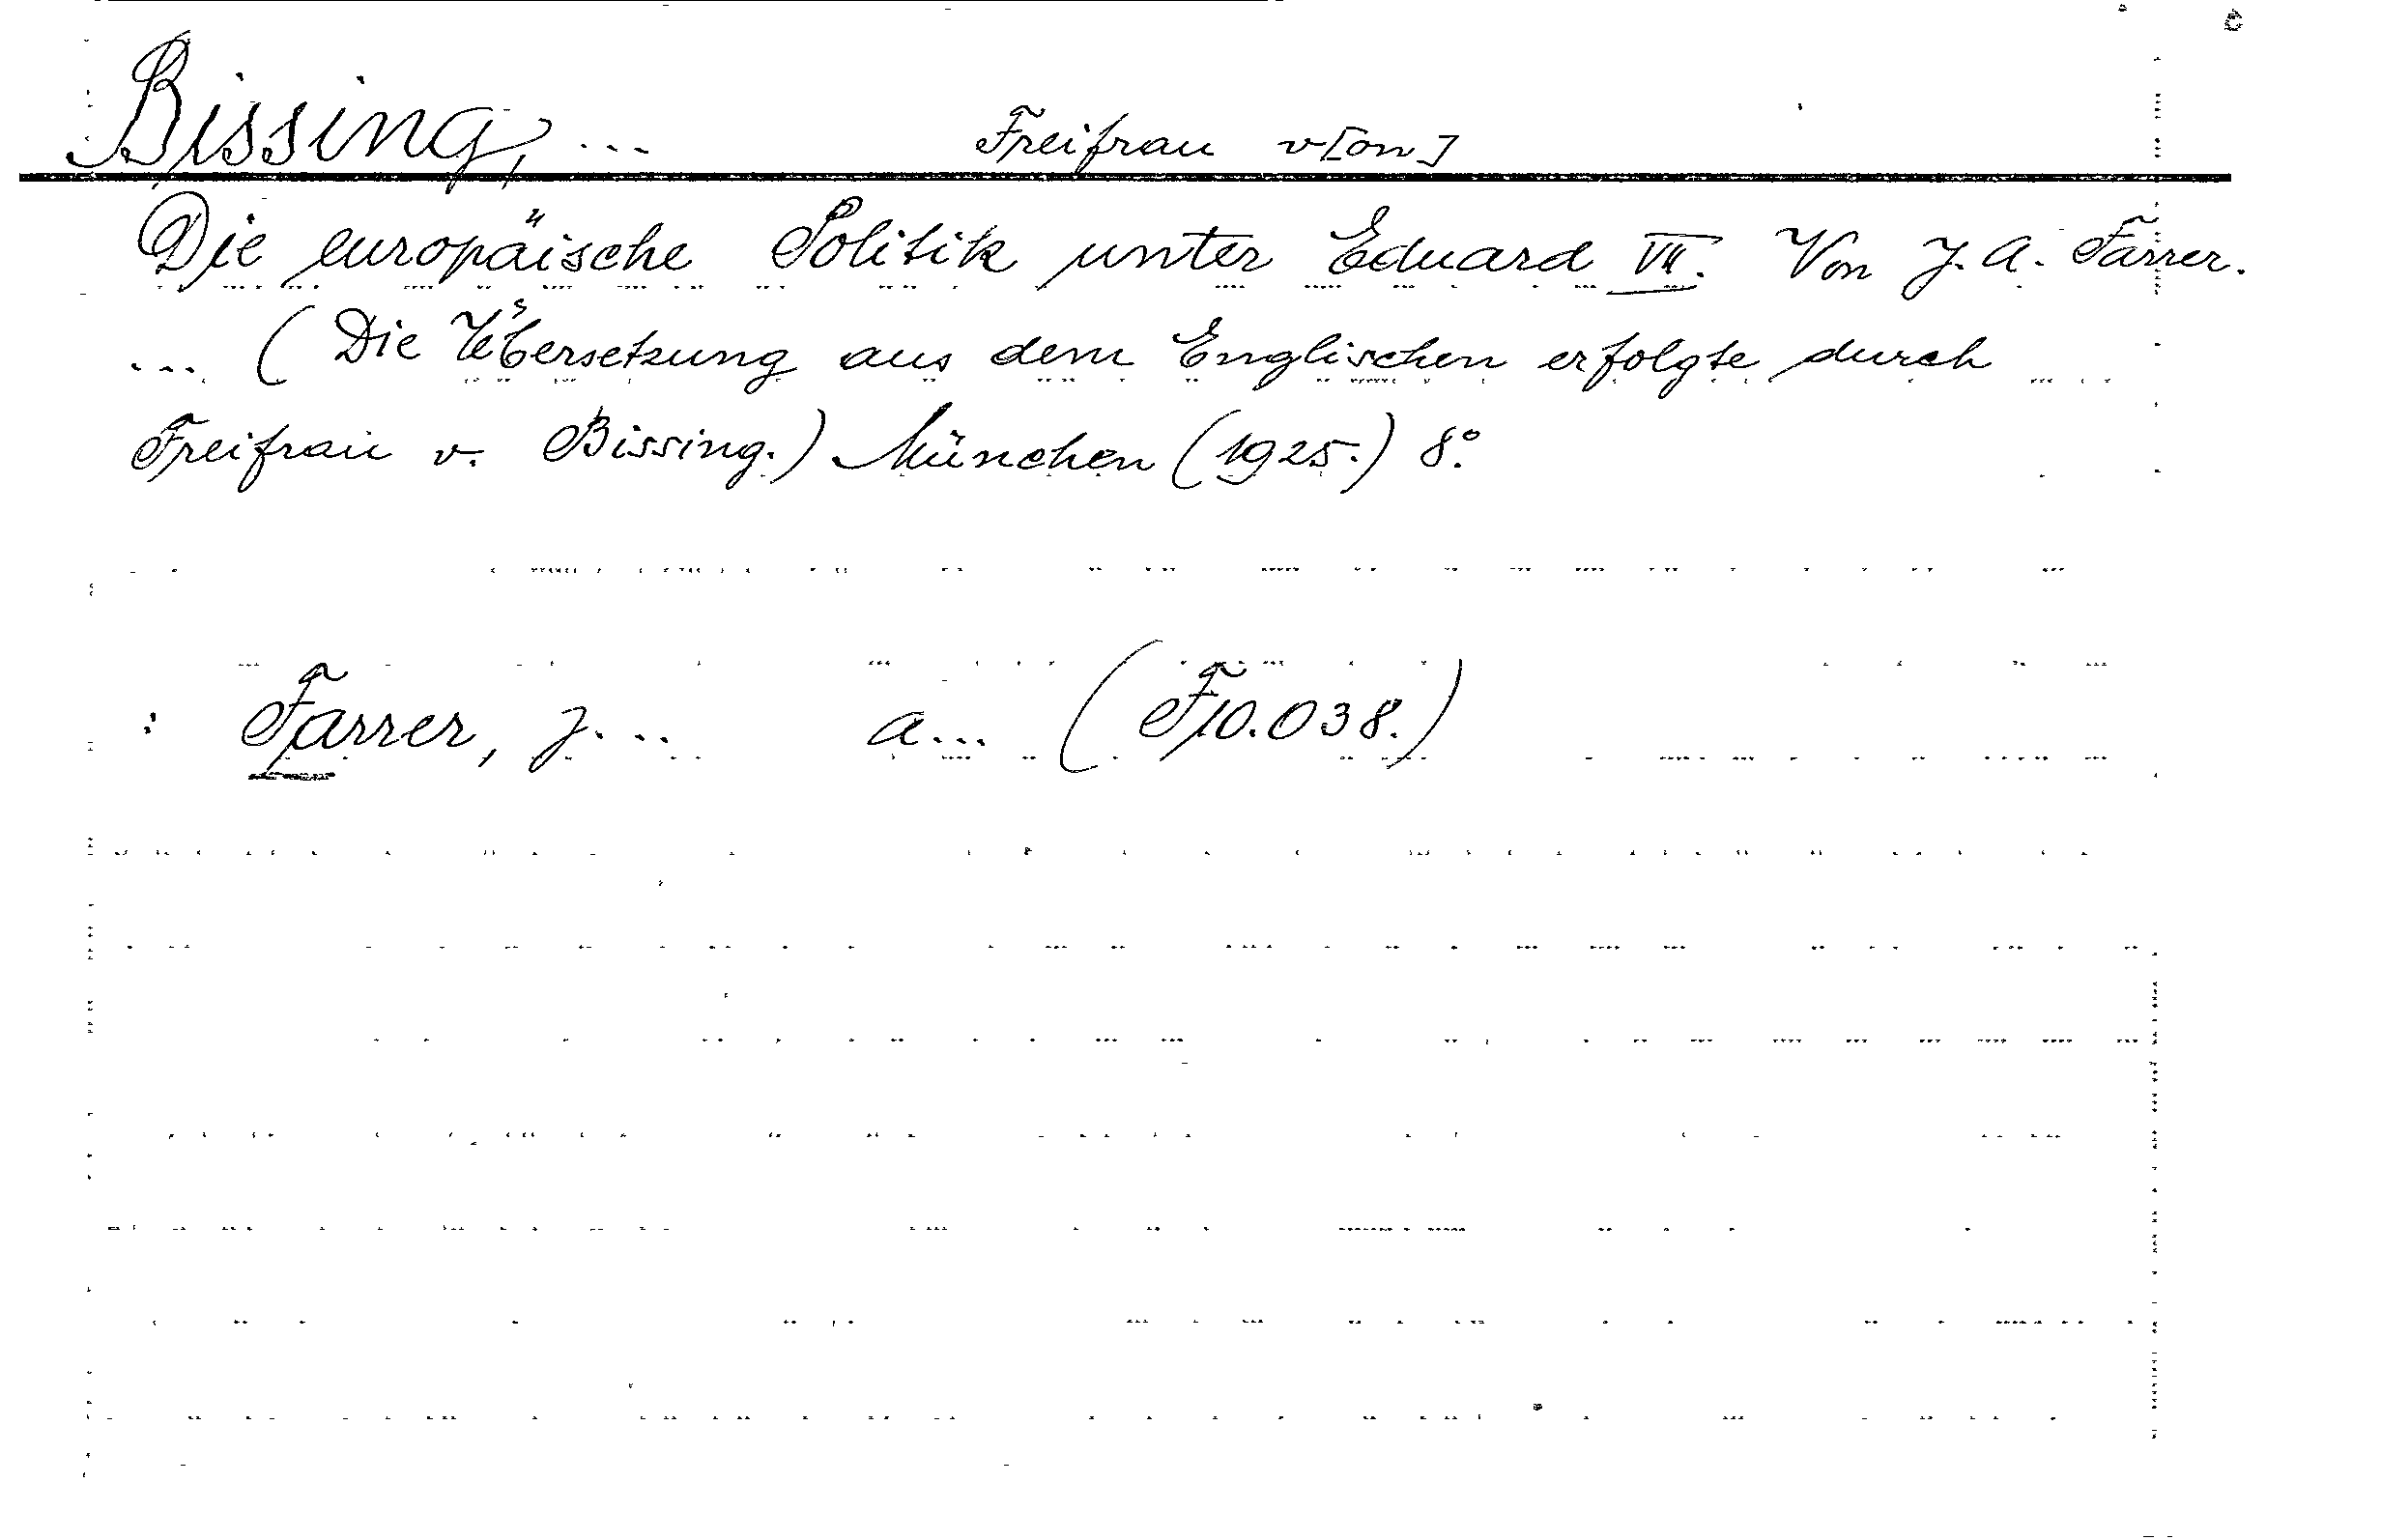 Bissing, ... Freifrau v[on]
Die europäische Politik unter Eduard VII. Von J. A. Farrer.
... (Die Übersetzung aus dem Englischen erfolgte durch
Freifrau v. Bissing.) München (1925.) 8°.
: Farrer, J... A... (F10.038.)